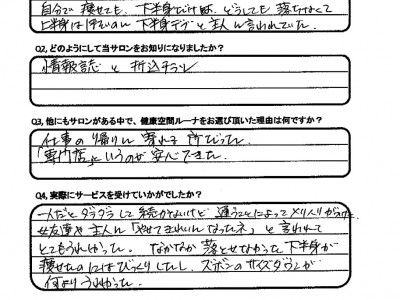 自分で痩せても、下半身だけは、どうしても落ちなくて
上半身は平らいのに下半身デブと主人に言われていた。
Q2, どのようにして当サロンをお知りになりましたか?
情報誌と折込チラシ
Q3, 他にもサロンがある中で、健康空間ルーナをお選び頂いた理由は何ですか?
仕事の帰りに寄れる所だった。
「専門店」というのが安心できた。
Q4, 実際にサービスを受けていかがでしたか?
一人だとダラダラして続かないけど、通うことによってメリハリがつき、
女友達や主人に「やせてきれいになったネ」と言われて
とてもうれしかった。なかなか落とせなかった下半身が
痩せたのにはびっくりしたし、ズボンのサイズダウンが
何よりうれしかった。